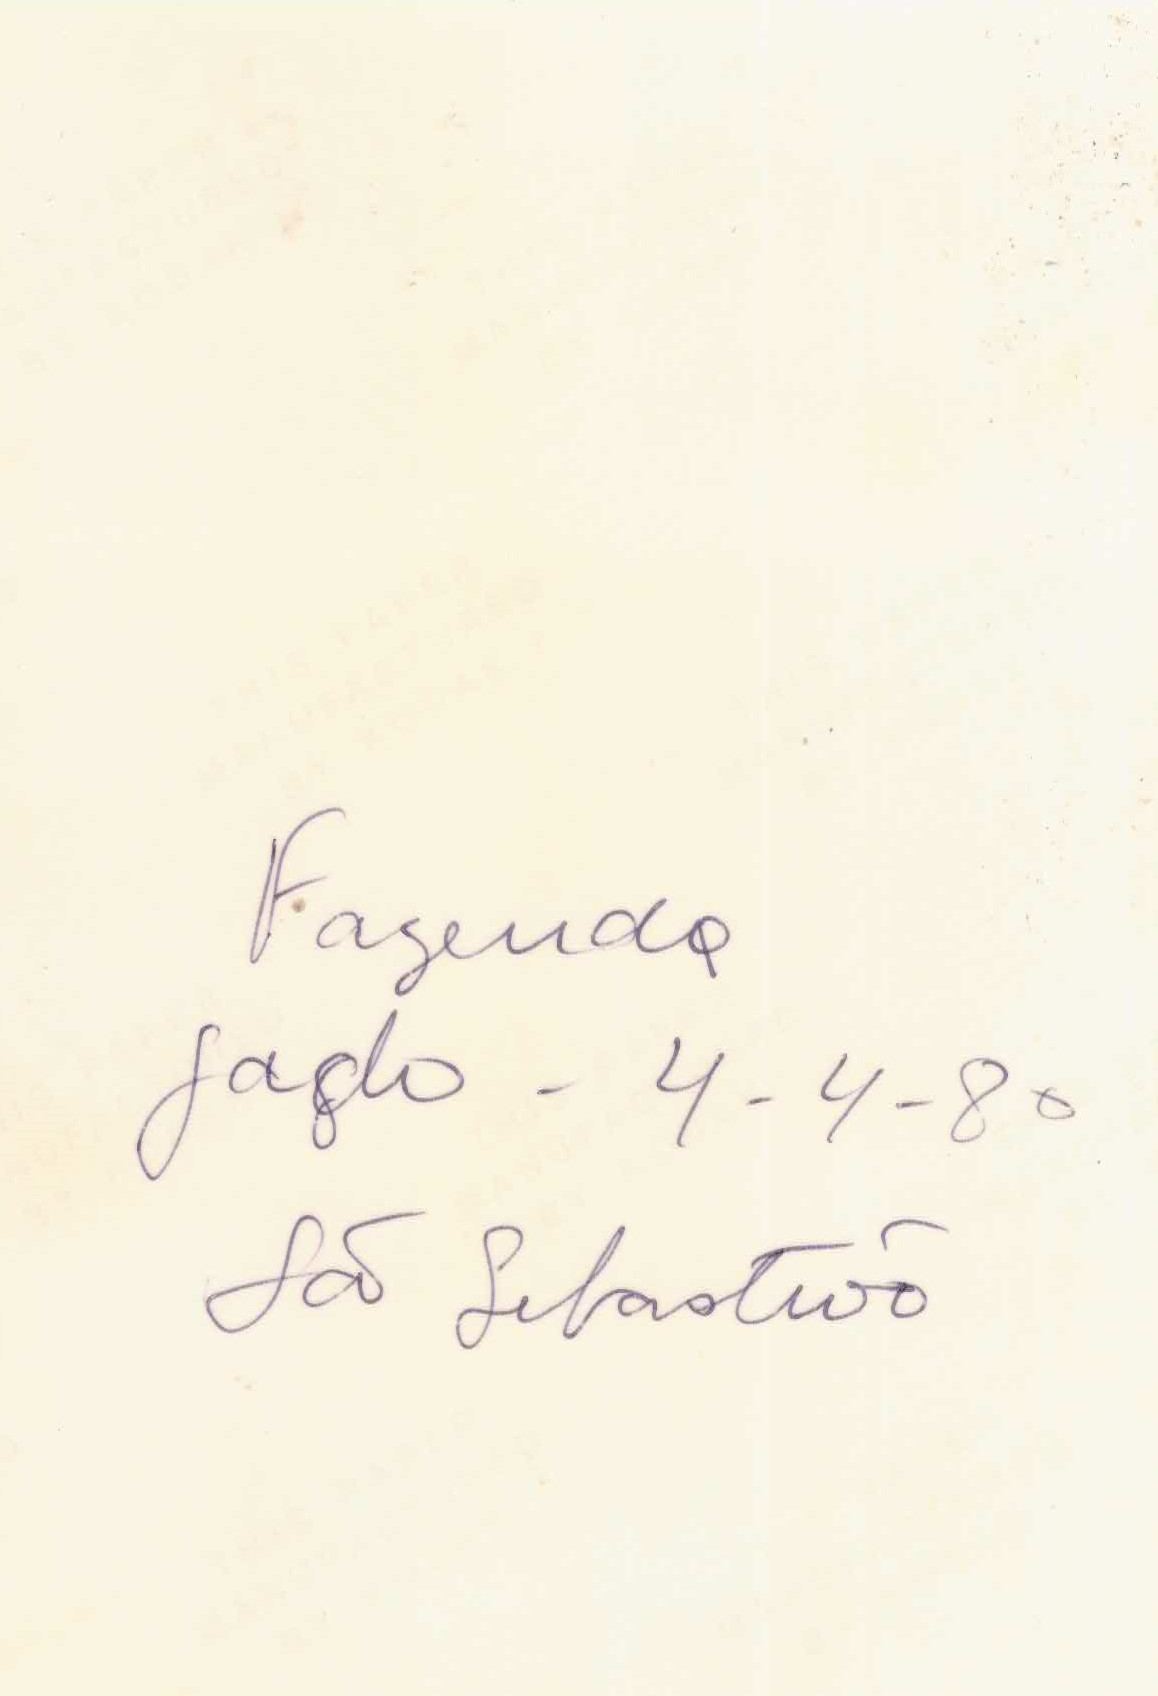 Fazenda
- 4-4-80
São Sebastião